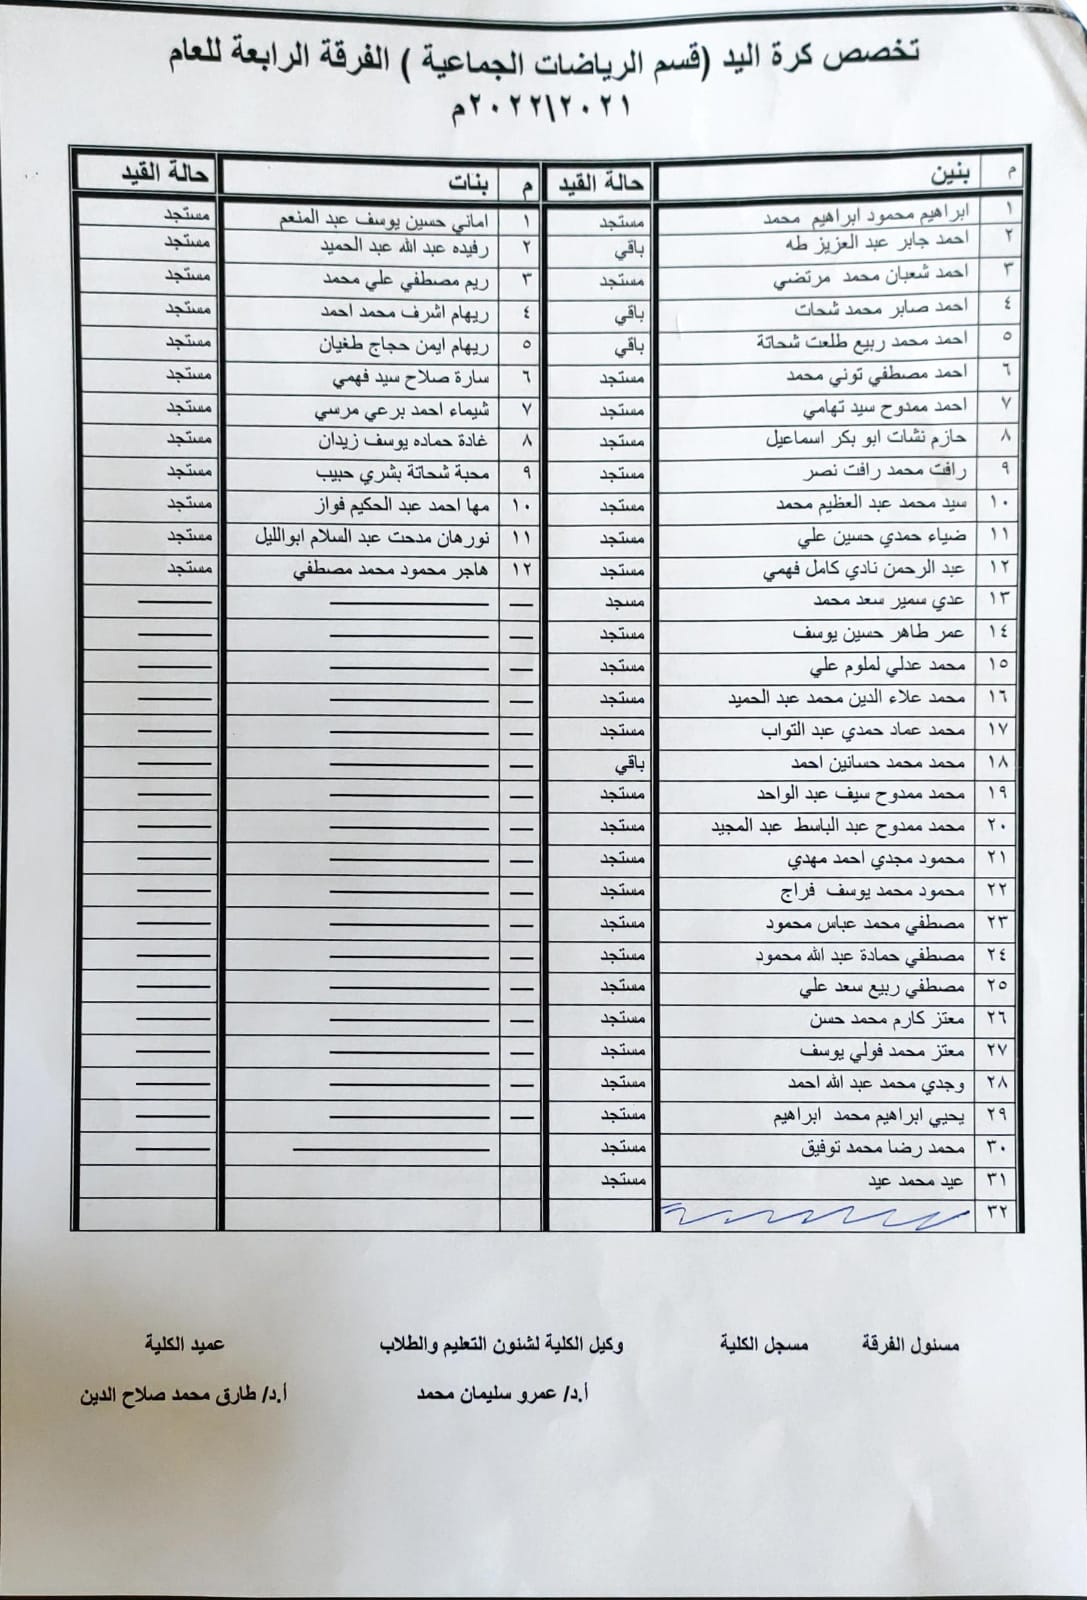 تخصص كرة اليد (قسم الرياضات الجماعية ) الفرقة الرابعة للعام
٢٠٢٢\٢٠٢١م
م بنين حالة القيد م بنات حالة القيد
١ ابراهيم محمود ابراهيم محمد مستجد ١ اماني حسين يوسف عبد المنعم مستجد
٢ احمد جابر عبد العزيز طه باقي ٢ رفيده عبد الله عبد الحميد مستجد
٣ احمد شعبان محمد مرتضي مستجد ٣ ريم مصطفي علي محمد مستجد
٤ احمد صابر محمد شحات باقي ٤ ريهام اشرف محمد احمد مستجد
٥ احمد محمد ربيع طلعت شحاتة باقي ٥ ريهام ايمن حجاج طغيان مستجد
٦ احمد مصطفي توني محمد مستجد ٦ سارة صلاح سيد فهمي مستجد
٧ احمد ممدوح سيد تهامي مستجد ٧ شيماء احمد برعي مرسي مستجد
٨ حازم نشات ابو بكر اسماعيل مستجد ٨ غادة حماده يوسف زيدان مستجد
٩ رافت محمد رافت نصر مستجد ٩ محبة شحاتة بشري حبيب مستجد
١٠ سيد محمد عبد العظيم محمد مستجد ١٠ مها احمد عبد الحكيم فواز مستجد
١١ ضياء حمدي حسين علي مستجد ١١ نورهان مدحت عبد السلام ابوالليل مستجد
١٢ عبد الرحمن نادي كامل فهمي مستجد ١٢ هاجر محمود محمد مصطفي مستجد
١٣ عدي سمير سعد محمد مسجد
١٤ عمر طاهر حسين يوسف مستجد
١٥ محمد عدلي لملوم علي مستجد
١٦ محمد علاء الدين محمد عبد الحميد مستجد
١٧ محمد عماد حمدي عبد التواب مستجد
١٨ محمد محمد حسانين احمد باقي
١٩ محمد ممدوح سيف عبد الواحد مستجد
٢٠ محمد ممدوح عبد الباسط عبد المجيد مستجد
٢١ محمود مجدي احمد مهدي مستجد
٢٢ محمود محمد يوسف فراج مستجد
٢٣ مصطفي محمد عباس محمود مستجد
٢٤ مصطفي حمادة عبد الله محمود مستجد
٢٥ مصطفي ربيع سعد علي مستجد
٢٦ معتز كارم محمد حسن مستجد
٢٧ معتز محمد فولي يوسف مستجد
٢٨ وجدي محمد عبد الله احمد مستجد
٢٩ يحيي ابراهيم محمد ابراهيم مستجد
٣٠ محمد رضا محمد توفيق مستجد
٣١ عيد محمد عيد مستجد
٣٢
مسئول الفرقة مسجل الكلية وكيل الكلية لشئون التعليم والطلاب عميد الكلية
أ.د/ عمرو سليمان محمد أ.د/ طارق محمد صلاح الدين